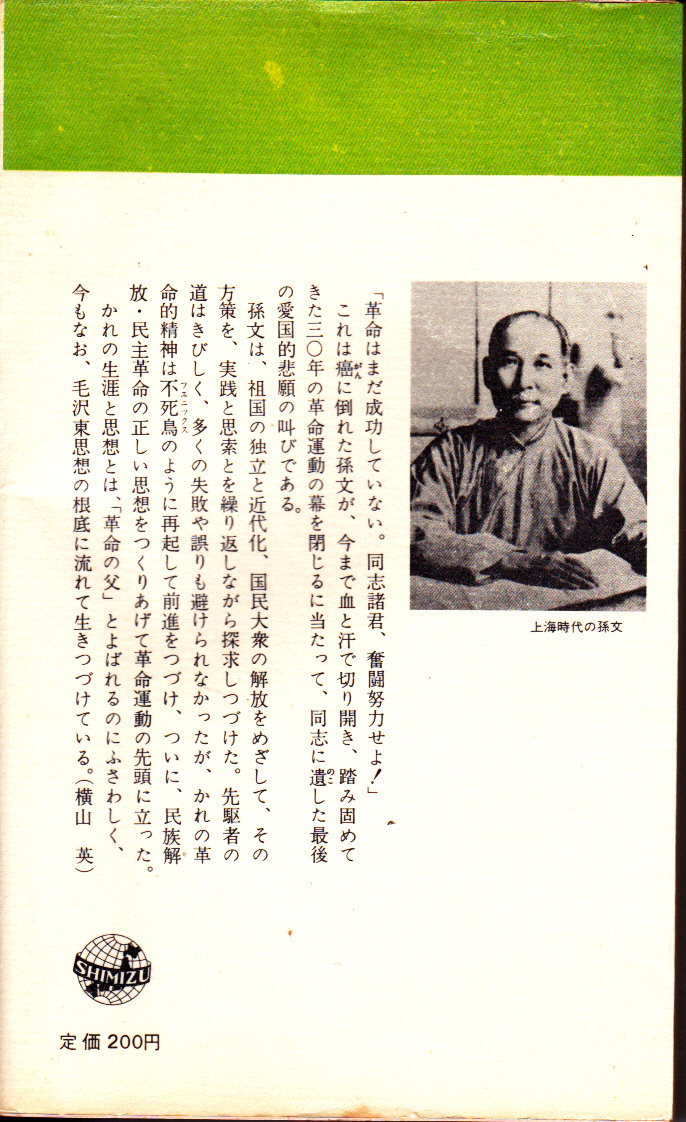 「革命はまだ成功していない。同志諸君、奮闘努力せよ！」
これは癌に倒れた孫文が、今まで血と汗で切り開き、踏み固めて
がん
きた三〇年の革命運動の幕を閉じるに当たって、同志に遺した最後
のこ
の愛国的悲願の叫びである。
孫文は、祖国の独立と近代化、国民大衆の解放をめざして、その
方策を、実践と思索とを繰り返しながら探求しつづけた。先駆者の
道はきびしく、多くの失敗や誤りも避けられなかったが、かれの革
命的精神は不死鳥のように再起して前進をつづけ、ついに、民族解
フェニックス
放・民主革命の正しい思想をつくりあげて革命運動の先頭に立った。
かれの生涯と思想とは、「革命の父」とよばれるのにふさわしく、
今もなお、毛沢東思想の根底に流れて生きつづけている。（横山 英）
上海時代の孫文
SHIMIZU
定価200円